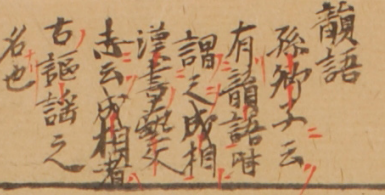 韻語
孫卿子云
有韻語時
謂之成相
漢書藝文
志云成相者
古謳謡之
名也